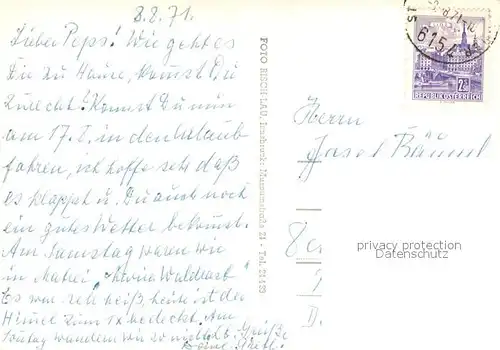 8.8.71.
Lieber Peps! Wie geht es
Dir zu Hause, kommst Du
zurecht? Kannst Du nun
am 17.8. in den Urlaub
fahren, ich hoffe sehr daß
es klappt u. Du auch noch
ein gutes Wetter bekomst.
Am Samstag waren wir
in Matrei,
Es war sehr heiß, heute ist der
Himel zum 1x bedeckt. Am
wandern wir Grüße
Deine
FOTO RISCH-LAU, Innsbruck, Museumstraße 21 - Tel.
6154
REPUBLIK ÖSTERREICH
Herrn
Josef
privacy protection
Datenschutz